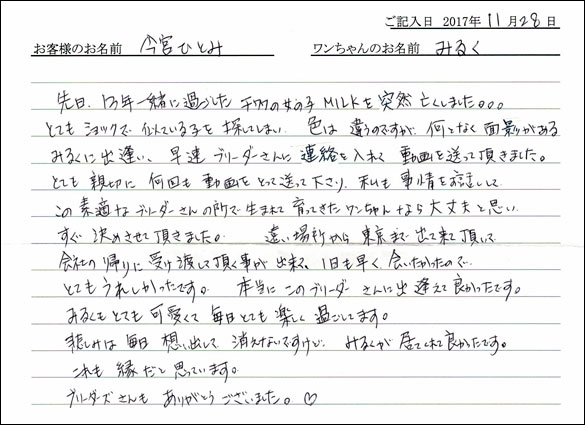 ご記入日 2017年 11月28日
お客様のお名前 今宮ひとみ ワンちゃんのお名前 みるく
先日、13年一緒に過ごした チワワの女の子 MILKを 突然 亡くしました。。。
とても ショックで 似ている子を 探してしまい 色は 違うのですが、何となく 面影がある
みるくに出逢い、早速 ブリーダーさんに 連絡を入れて 動画を送って頂きました。
とても 親切に 何回も 動画を とって送って下さり、私も 事情をお話して
この 素適な ブリーダーさんの所で 生まれて 育ってきた ワンちゃんなら 大丈夫と思い
すぐ 決めさせて頂きました。 遠い場所から 東京まで 出て来て頂いて
会社の 帰りに 受け渡して頂く事が 出来、1日も早く 会いたかったので
とても うれしかったです。 本当に このブリーダー さんに出逢えて良かったです。
みるくも とても 可愛くて 毎日とても 楽しく 過ごしてます。
悲しみは 毎日 想い出して 消えないですけど、みるくが 居てくれて良かったです。
これも 縁だと 思っています。
ブリーダーズさんも ありがとう ございました。♡